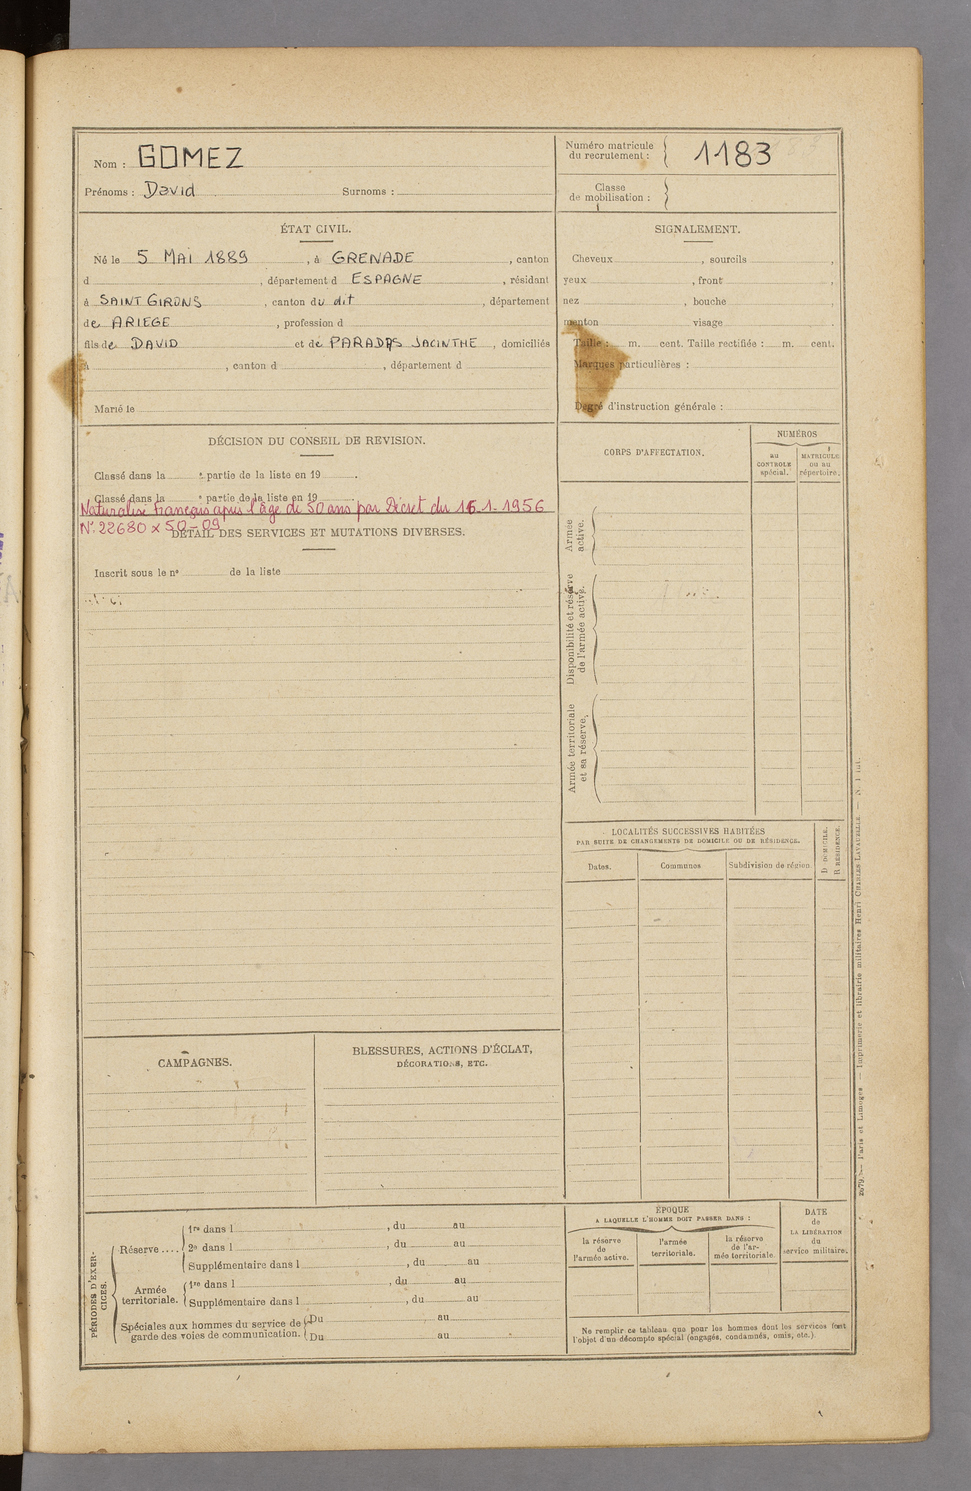 Nom : GOMEZ
Prénoms : David Surnoms :
Numéro matricule du recrutement : 1183
Classe de mobilisation :
ÉTAT CIVIL.
Né le 5 MAI 1889, à GRENADE, canton
d, département d ESPAGNE, résidant
à SAINT GIRONS, canton du dit, département
de ARIEGE, profession d
fils de DAVID et de PARADAS JACINTHE, domiciliés
à, canton d, département d
Marié le
SIGNALEMENT.
Cheveux, sourcils,
yeux, front,
nez, bouche,
menton visage.
Taille : m. cent. Taille rectifiée : m. cent.
Marques particulières :
Degré d'instruction générale :
DÉCISION DU CONSEIL DE REVISION.
Classé dans la e partie de la liste en 19.
Classé dans la e partie de la liste en 19.
Naturalisé français après l'âge de 50 ans par Décret du 16-1-1956
N° 22680 x 50-09
DÉTAIL DES SERVICES ET MUTATIONS DIVERSES.
Inscrit sous le n° de la liste
CORPS D'AFFECTATION.
NUMÉROS
au CONTROLE spécial.
MATRICULE ou au répertoire.
Armée active.
Disponibilité et réserve de l'armée active.
Armée territoriale et sa réserve.
LOCALITÉS SUCCESSIVES HABITÉES
PAR SUITE DE CHANGEMENTS DE DOMICILE OU DE RÉSIDENCE.
D. DOMICILE.
R. RÉSIDENCE.
Dates. Communes Subdivision de région
CAMPAGNES.
BLESSURES, ACTIONS D'ÉCLAT,
DÉCORATIONS, ETC.
PÉRIODES D'EXERCICES.
Réserve .... 1re dans l, du au
2e dans l, du au
Supplémentaire dans l, du au
Armée territoriale. 1re dans l, du au
Supplémentaire dans l, du au
Spéciales aux hommes du service de garde des voies de communication. Du au
Du au
ÉPOQUE
A LAQUELLE L'HOMME DOIT PASSER DANS :
la réserve de l'armée active.
l'armée territoriale.
la réserve de l'armée territoriale.
DATE de LA LIBÉRATION du service militaire.
Ne remplir ce tableau que pour les hommes dont les services font
l'objet d'un décompte spécial (engagés, condamnés, omis, etc.).
Paris et Limoges. — Imprimerie et librairie militaires Henri CHARLES-LAVAUZELLE. —